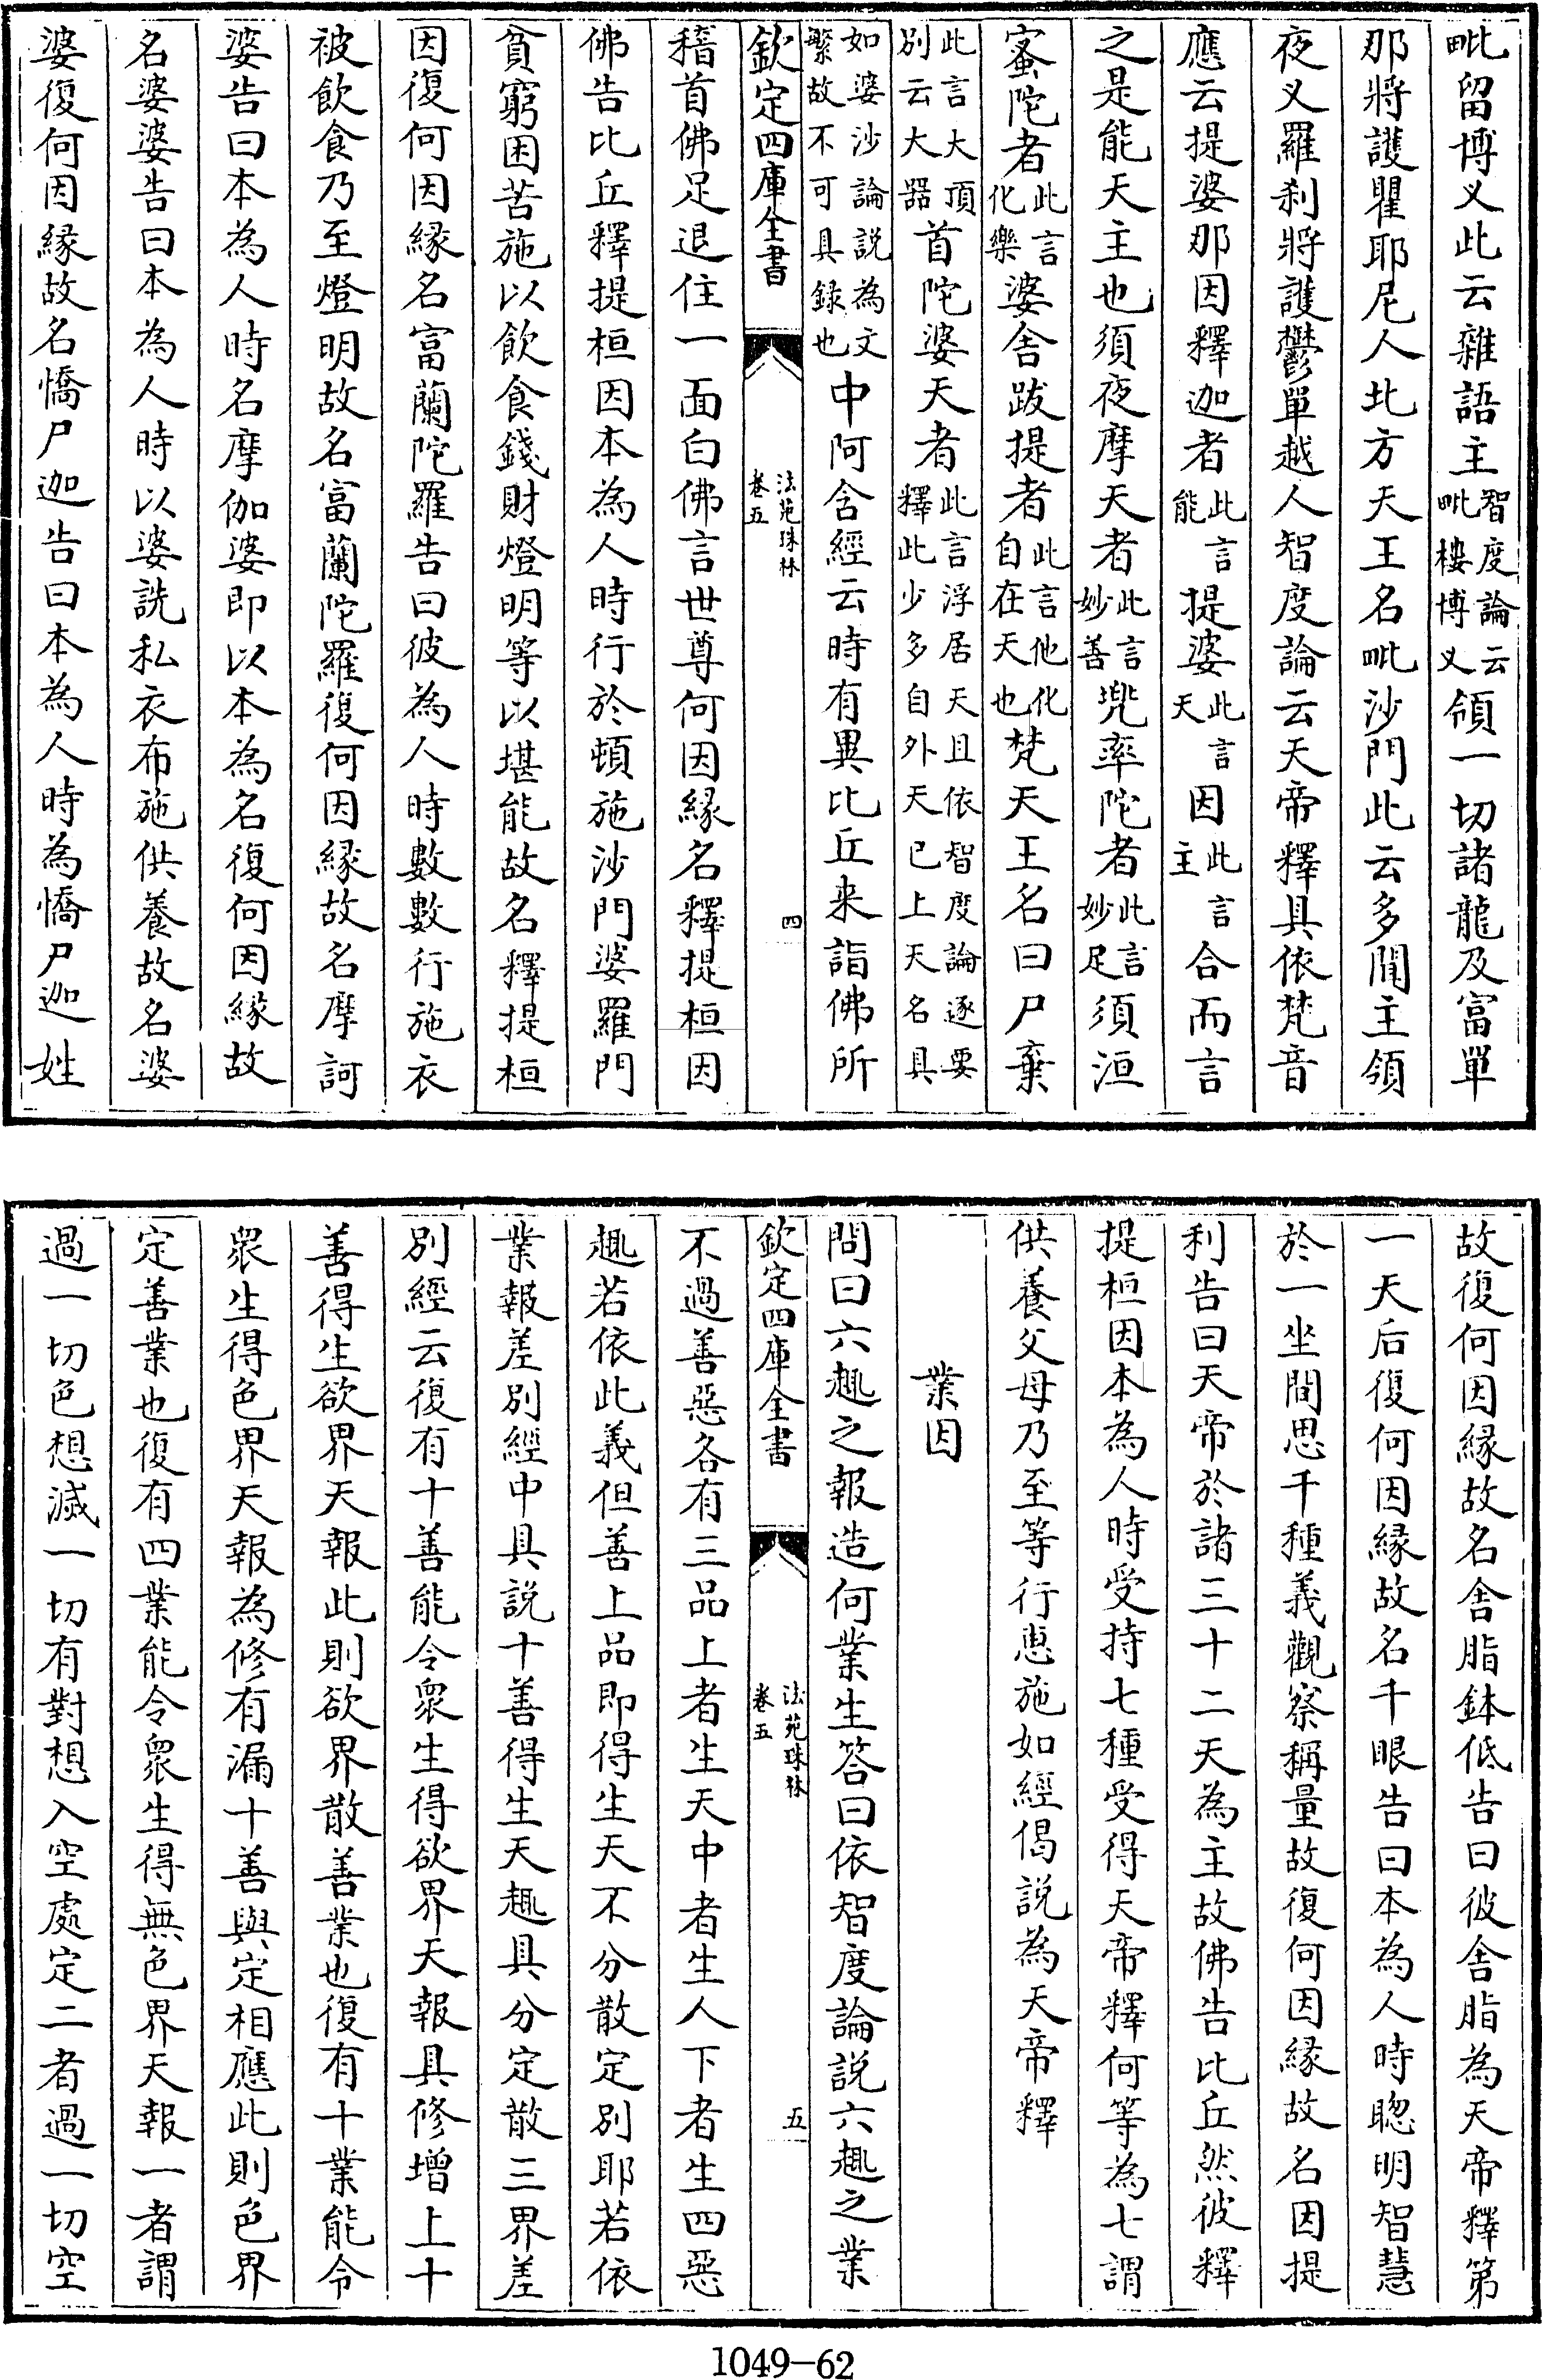 毗留博义此云雜語主智度論云毗樓博义領一切諸龍及富單
那將護瞿耶尼人北方天王名毗沙門此云多聞主領
夜义羅刹將護鬱單越人智度論云天帝釋具依梵音
應云提婆那因釋迦者此言能提婆此言天因此言主合而言
之是能天主也須夜摩天者此言妙善兠率陀者此言妙足須洹
蜜陀者此言化樂婆舍跋提者此言他化自在天也梵天王名曰尸棄
此言大頂別云大器首陀婆天者此言浮居天且依智度論逐要釋此少多自外天已上天名具
如婆沙論説為文繁故不可具録也中阿含經云時有異比丘来詣佛所
欽定四庫全書
法苑珠林
卷五
四
稽首佛足退住一面白佛言世尊何因縁名釋提桓因
佛告比丘釋提桓因本為人時行於頓施沙門婆羅門
貧窮困苦施以飲食錢財燈明等以堪能故名釋提桓
因復何因縁名富蘭陀羅告曰彼為人時數數行施衣
被飲食乃至燈明故名富蘭陀羅復何因縁故名摩訶
婆告曰本為人時名摩伽婆即以本為名復何因縁故
名婆婆告曰本為人時以婆詵私衣布施供養故名婆
婆復何因縁故名憍尸迦告曰本為人時為憍尸迦姓
故復何因縁故名舍脂鉢低告曰彼舍脂為天帝釋第
一天后復何因縁故名千眼告曰本為人時聰明智慧
於一坐間思千種義觀察稱量故復何因縁故名因提
利告曰天帝於諸三十二天為主故佛告比丘然彼釋
提桓因本為人時受持七種受得天帝釋何等為七謂
供養父母乃至等行惠施如經偈説為天帝釋
業因
問曰六趣之報造何業生答曰依智度論説六趣之業
欽定四庫全書
法苑珠林
卷五
五
不過善惡各有三品上者生天中者生人下者生四惡
趣若依此義但善上品即得生天不分散定別耶若依
業報差別經中具説十善得生天趣具分定散三界差
別經云復有十善能令衆生得欲界天報具修增上十
善得生欲界天報此則欲界散善業也復有十業能令
衆生得色界天報為修有漏十善與定相應此則色界
定善業也復有四業能令衆生得無色界天報一者謂
過一切色想滅一切有對想入空處定二者過一切空
1049-62